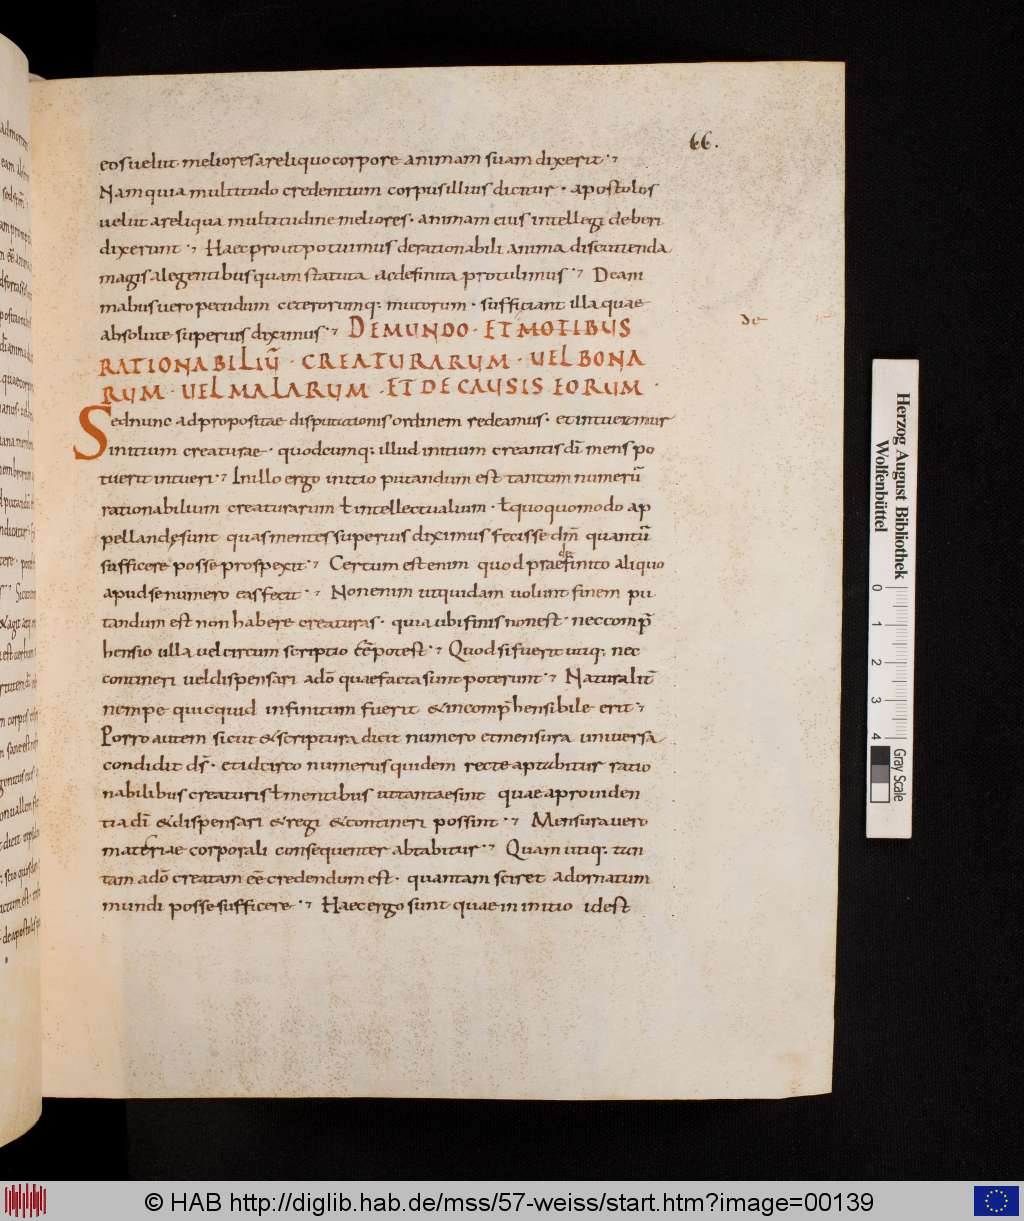 66.
eos uelut meliores a reliquo corpore animam suam dixerit
Nam quia multitudo credentium corpus illius dicitur · apostolos
uelut a reliqua multitudine meliores · animam eius intellegi debere
dixerunt Haec prout potuimus de rationabili anima discutienda
magis a legentibus quam statuta ac definita protulimus De ani
mabus uero pecudum ceterorumq; mutorum · sufficiant illa quae
absolute superius diximus DE MUNDO · ET MOTIBUS
de
RATIONABILIŪ · CREATURARUM · UEL BONA
RUM · UEL MALARUM · ET DE CAUSIS EORUM ·
Sed nunc ad propositae disputationis ordinem redeamus · et intueamur
initium creaturae · quodcumq; illud initium creantis dī mens po
tuerit intueri In illo ergo initio putandum est tantum numerū
rationabilium creaturarum ł intellectualium · ł quoquomodo ap
pellandę sunt quas mentes superius diximus fecisse dm̄ quantū
sufficere posse prospexit Certum est enim quod praedefinito aliquo
apud se numero eas fecit Non enim ut quidam uolunt finem pu
tandum est non habere creaturas · quia ubi finis non est · nec comp̄
hensio ulla uel circum scriptio ēē potest Quod si fuerit utiq; nec
contineri uel dispensari a dō quae facta sunt poterunt Naturalit̄
nempe quicquid infinitum fuerit & incomp̄hensibile erit
Porro autem sicut & scriptura dicit numero et mensura uniuersa
condidit ds̄ · et idcirco numerus quidem recte aptabitur ratio
nabilibus creaturis ł mentibus ut tantae sint quae a prouiden
tia dī & dispensari & regi & contineri possint Mensura uero
materiae corporali consequenter abtabitur Quam utiq; tan
tam a dō creatam ēē credendum est · quantam sciret ad ornatum
mundi posse sufficere Haec ergo sunt quae in initio id est
Herzog August Bibliothek
Wolfenbüttel
0 1 2 3 4
Gray Scale
© HAB http://diglib.hab.de/mss/57-weiss/start.htm?image=00139